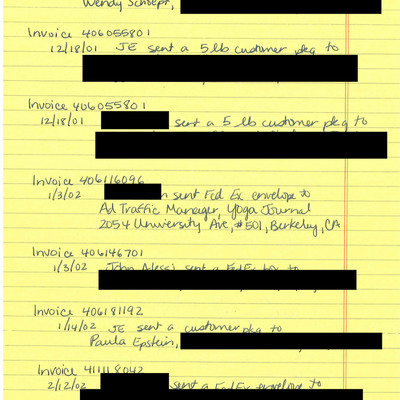 Wendy
Invoice 406055801
12/18/01 JE sent a 5 lb customer pkg to
Invoice 406055801
12/18/01 sent a 5 lb customer pkg to
Invoice 406116096
1/3/02 n sent Fed Ex envelope to
Ad Traffic Manager, Yoga Journal
2054 University Ave, #501, Berkeley, CA
Invoice 406146701
1/3/02 John Alessi sent a FedEx box to
Invoice 406181192
1/14/02 JE sent a customer pkg to
Paula Epstein,
Invoice 411118042
2/12/02 sent a FedEx envelope to